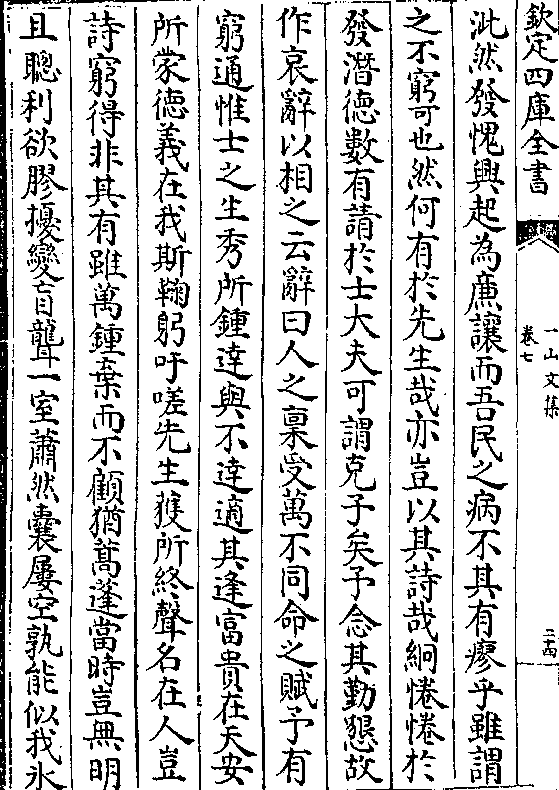 欽定四庫全書
一山文集
卷七
二十四
泚然發愧興起為廉讓而吾民之病不其有瘳乎雖謂
之不窮可也然何有於先生哉亦豈以其詩哉絅惓惓於
發潛德數有請於士大夫可謂克子矣予念其勤懇故
作哀辭以相之云辭曰人之稟受萬不同命之賦予有
窮通惟士之生秀所鍾達與不達適其逢富貴在天安
所蒙德義在我斯鞠躬吁嗟先生獲所終聲名在人豈
詩窮得非其有雖萬鍾棄而不顧猶蒿蓬當時豈無明
且聰利欲膠擾變盲聾一室蕭然囊屢空孰能似我氷